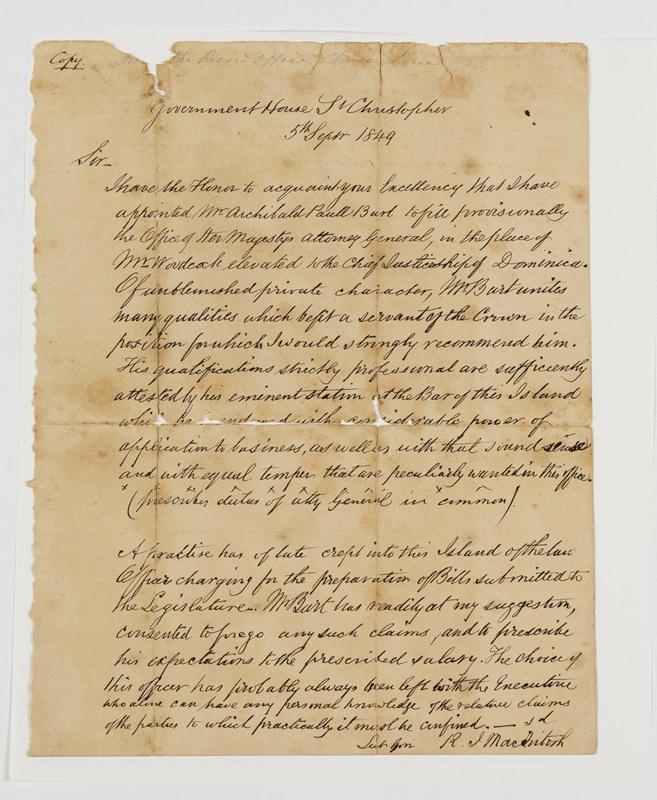 Copy.
Government House St Christopher
5th Septr 1849
Sir—
I have the Honor to acquaint your Excellency that I have
appointed Mr Archibald Paull Burt to fill provisionally
the Office of Her Majestys Attorney General, in the place of
Mr Woodcock, elevated to the Chief Justiceship of Dominica.
Of unblemished private character, Mr Burt unites
many qualities which befit a servant of the Crown in the
position for which I would strongly recommend him.
His qualifications strictly professional are sufficiently
attested by his eminent station at the Bar of this Island
with considerable power of
application to business, as well as with that sound sense
and with equal temper that are peculiarly wanted in this office.
(prescribes duties of atty General in common).
A practise has of late crept into this Island of the law
Officer charging for the preparation of Bills submitted to
the Legislature. Mr Burt has readily at my suggestion,
consented to forego any such claims, and to prescribe
his expectations to the prescribed salary. The choice of
this officer has probably always been left with the Executive
who alone can have any personal knowledge of the relative claims
of the parties to which practically it must be confined. — sd
R. J Mac Intosh